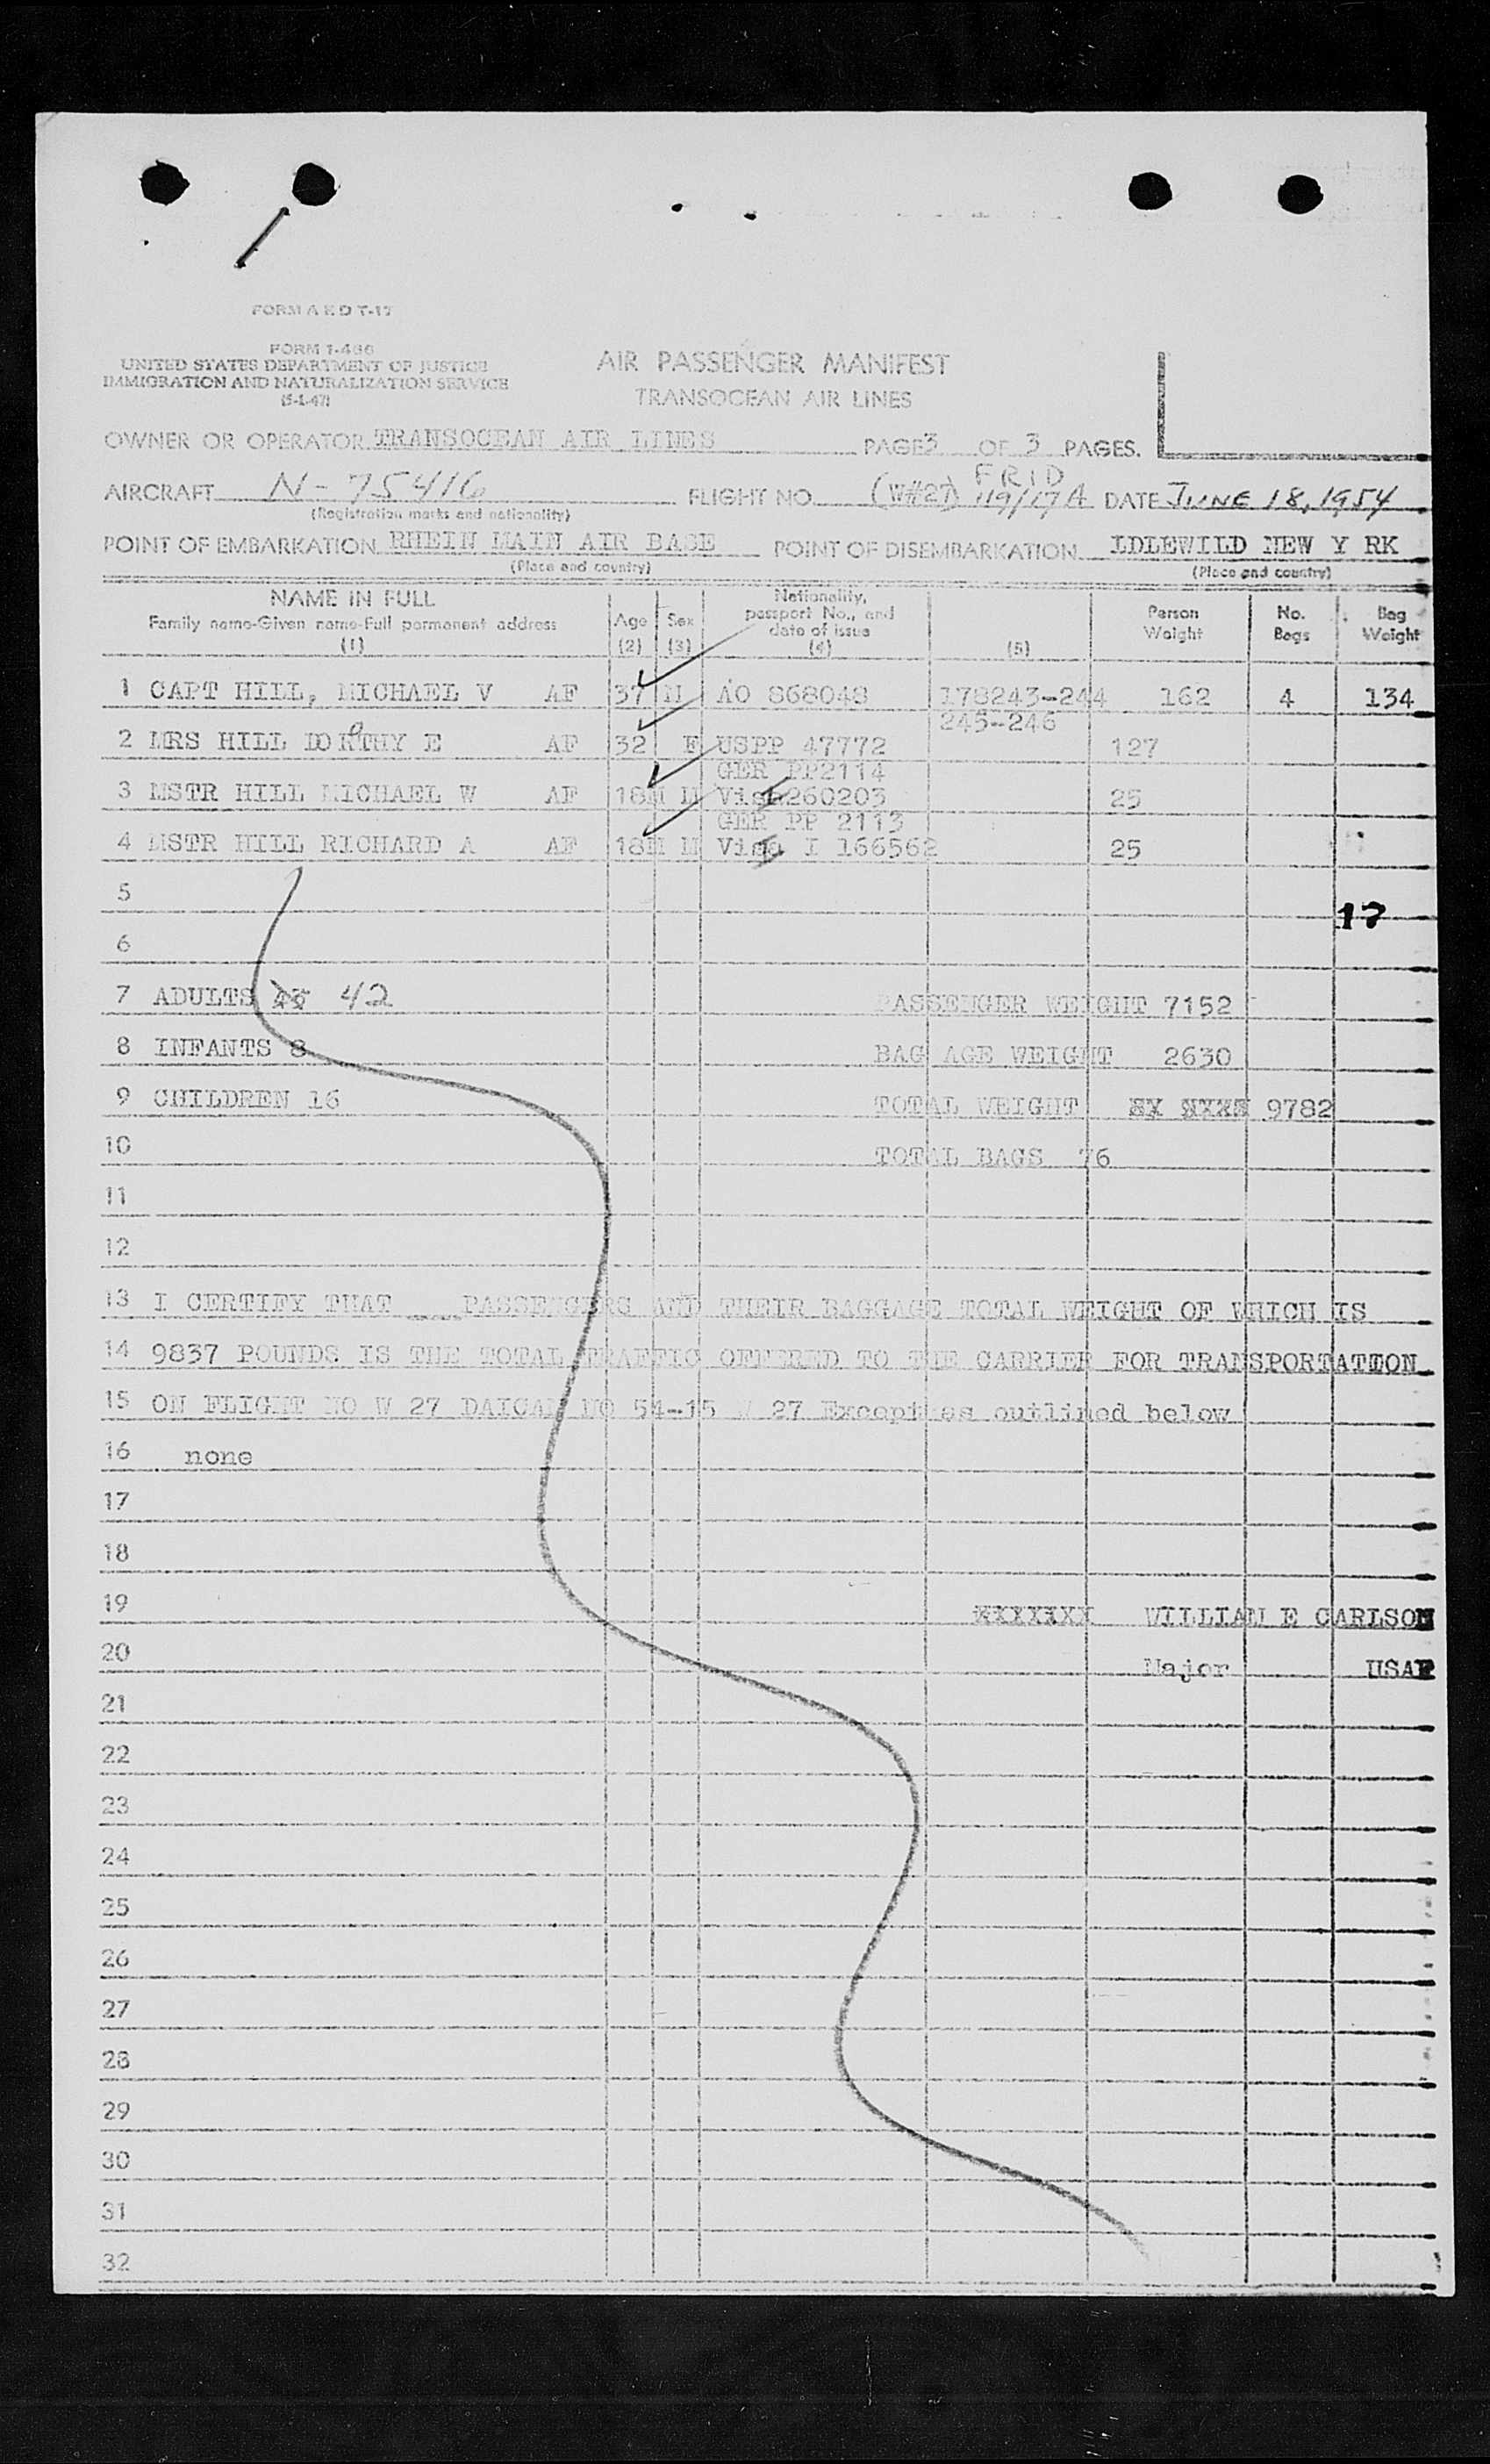 FORM A E D T-17
FORM I-466
UNITED STATES DEPARTMENT OF JUSTICE
IMMIGRATION AND NATURALIZATION SERVICE
(5-1-47)
AIR PASSENGER MANIFEST
TRANSOCEAN AIR LINES
OWNER OR OPERATOR TRANSOCEAN AIR LINES PAGE 3 OF 3 PAGES.
AIRCRAFT N-75416 FLIGHT NO. (W#27) FRID 119/17A DATE JUNE 18, 1954
(Registration marks and nationality)
POINT OF EMBARKATION RHEIN MAIN AIR BASE POINT OF DISEMBARKATION IDLEWILD NEW Y RK
(Place and country) (Place and country)
NAME IN FULL
Family name-Given name-Full permanent address
(1)
Age
(2)
Sex
(3)
Nationality,
passport No., and
date of issue
(4)
(5)
Person
Weight
No.
Bags
Bag
Weight
1 CAPT HILL, MICHAEL V AF 37 M AO 868048 178243-244 162 4 134
245-246
2 MRS HILL DORTHY E AF 32 F USPP 47772 127
GER PP2114
3 MSTR HILL MICHAEL W AF 18M M Visa260203 25
GER PP 2113
4 MSTR HILL RICHARD A AF 18M M Visa I 166562 25
5
17
6
7 ADULTS 42 PASSENGER WEIGHT 7152
8 INFANTS 8 BAG AGE WEIGHT 2630
9 CHILDREN 16 TOTAL WEIGHT 9782
10 TOTAL BAGS 76
11
12
13 I CERTIFY THAT ____ PASSENGERS AND THEIR BAGGAGE TOTAL WEIGHT OF WHICH IS
14 9837 POUNDS IS THE TOTAL TRAFFIC OFFERED TO THE CARRIER FOR TRANSPORTATION
15 ON FLIGHT NO W 27 DAICAN NO 54-15 W 27 Except as outlined below
16 none
17
18
19 XXXXXXX WILLIAM E CARLSON
20 Major USAF
21
22
23
24
25
26
27
28
29
30
31
32